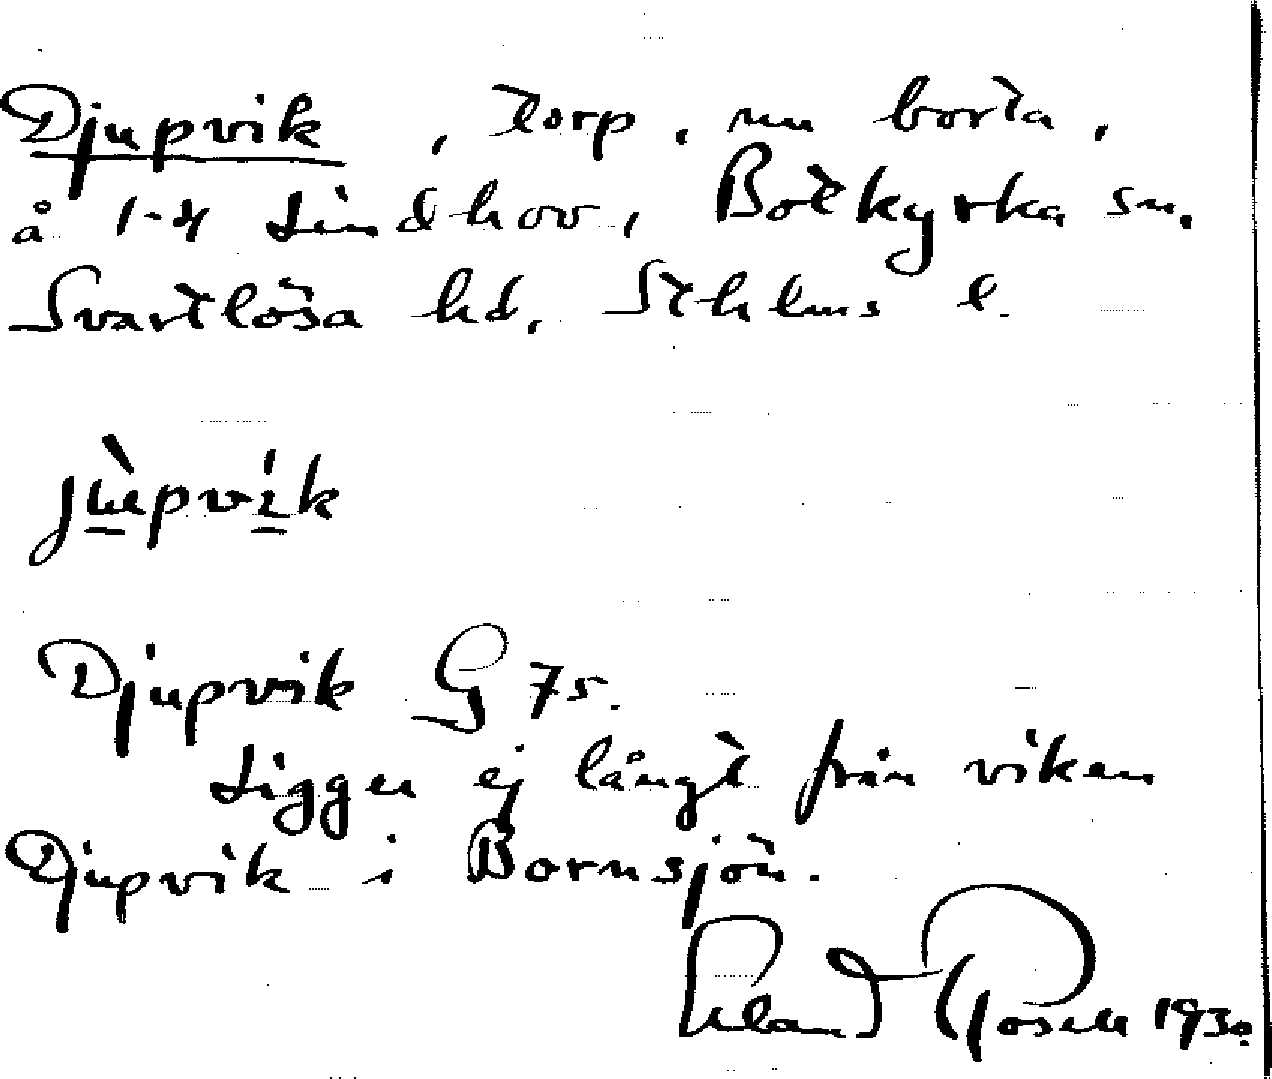 Djupvik, torp, nu borta,
å 1-4 Lindhov, Botkyrka sn,
Svartlösa hd, Sthlms l.
jùpvík
Djupvik G 75.
Ligger ej långt från viken
Djupvik i Bornsjön.
Erland Rosell 1930.